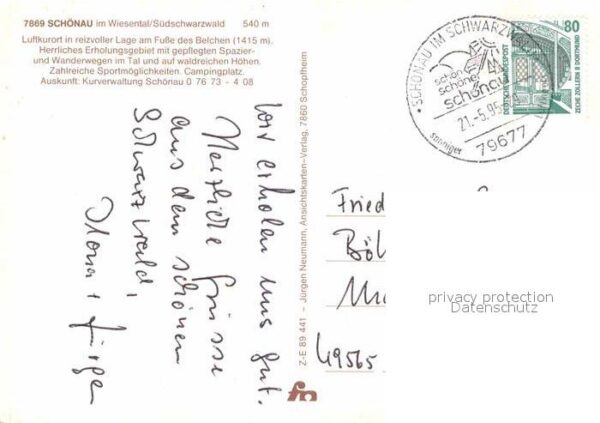 7869 SCHÖNAU im Wiesental/Südschwarzwald 540 m
Luftkurort in reizvoller Lage am Fuße des Belchen (1415 m).
Herrliches Erholungsgebiet mit gepflegten Spazier-
und Wanderwegen im Tal und auf waldreichen Höhen.
Zahlreiche Sportmöglichkeiten. Campingplatz.
Auskunft: Kurverwaltung Schönau 0 76 73 - 4 08
Wir erholen uns gut.
Herzliche Grüsse
aus dem schönen
Schwarzwald,
Ilona + Jürgen
Z-E 89 441 – Jürgen Neumann, Ansichtskarten-Verlag, 7860 Schopfheim
SCHÖNAU IM SCHWARZW
schön
schöner
schönau
21.-5.95
79677
80
DEUTSCHE BUNDESPOST
ZECHE ZOLLERN II DORTMUND
Fried
Böl
49565
privacy protection
Datenschutz